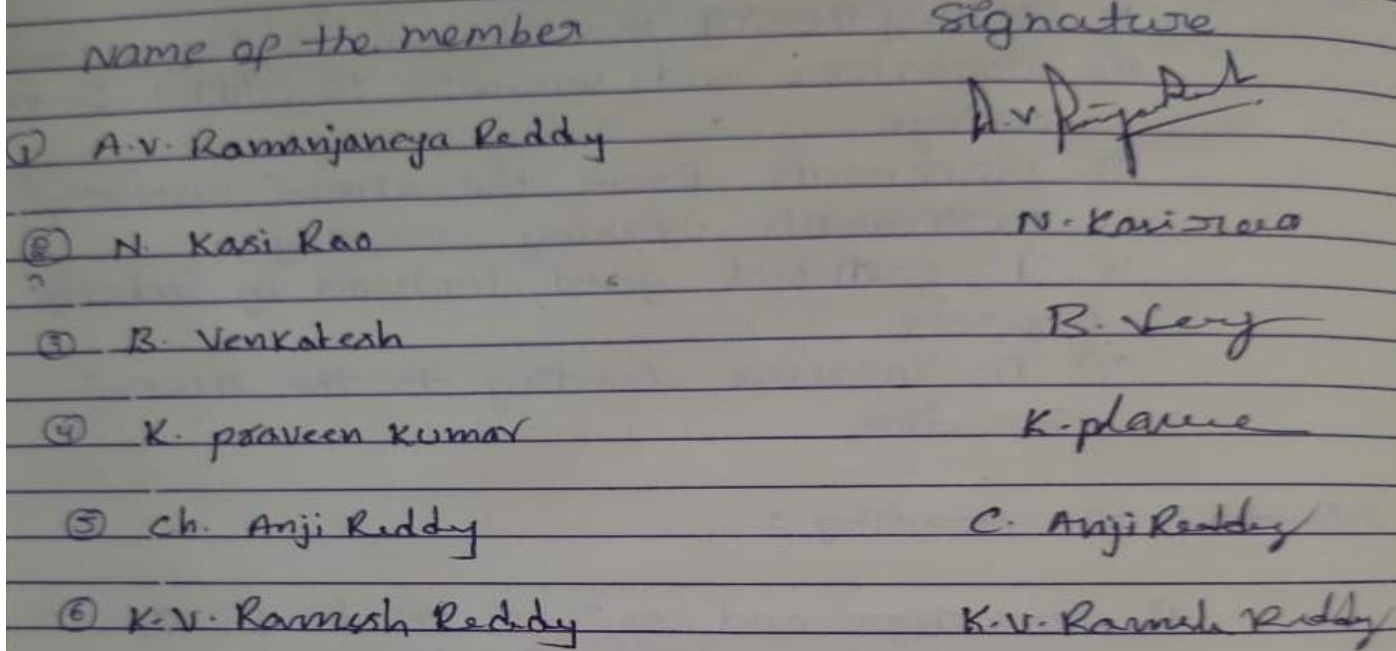 Name of the member Signature
① A.V. Ramanjaneya Reddy A.v
② N. Kasi Rao N. Kasirao
③ B. Venkatesh B.
④ K. praveen kumar K.
⑤ Ch. Anji Reddy C. Anji Reddy
⑥ K.V. Ramesh Reddy K.V. Ramesh Reddy